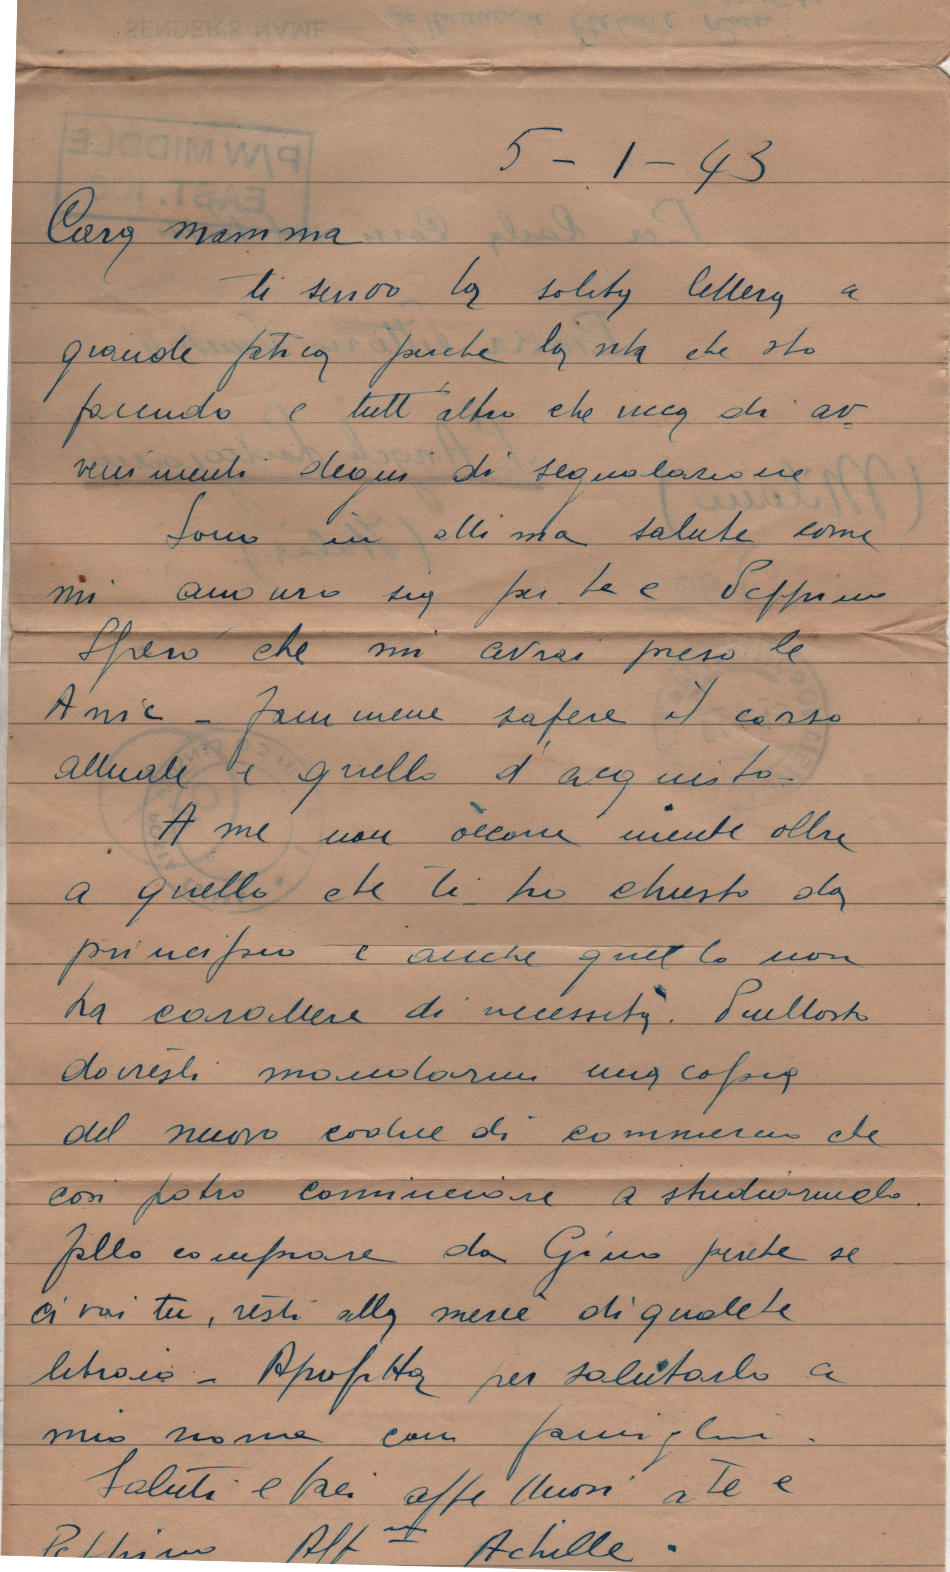 SENDER'S NAME
P/W MIDDLE
EAST.
5 - 1 - 43
Cara mamma
ti scrivo la solita lettera a
grande fatica perche la vita che sto
facendo e tutt'altro che ricca di av-
venimenti degni di segnalazione
Sono in ottima salute come
mi auguro sia per te e Peppino
Spero che mi avrai preso le
Anic - fammene sapere il corso
attuale e quello d'acquisto -
A me non occorre niente oltre
a quello che ti ho chiesto da
principio e anche quello non
ha carattere di necessità. Piuttosto
dovresti mandarmi una copia
del nuovo codice di commercio che
cosi potro cominciare a studiarmelo.
Fallo comprare da Gino perche se
ci vai tu, resti alla mercè di qualche
libraio - Approfitta per salutarlo a
mio nome con famiglia.
Saluti e baci affettuosi a Te e
Peppino Aff.mo Achille.